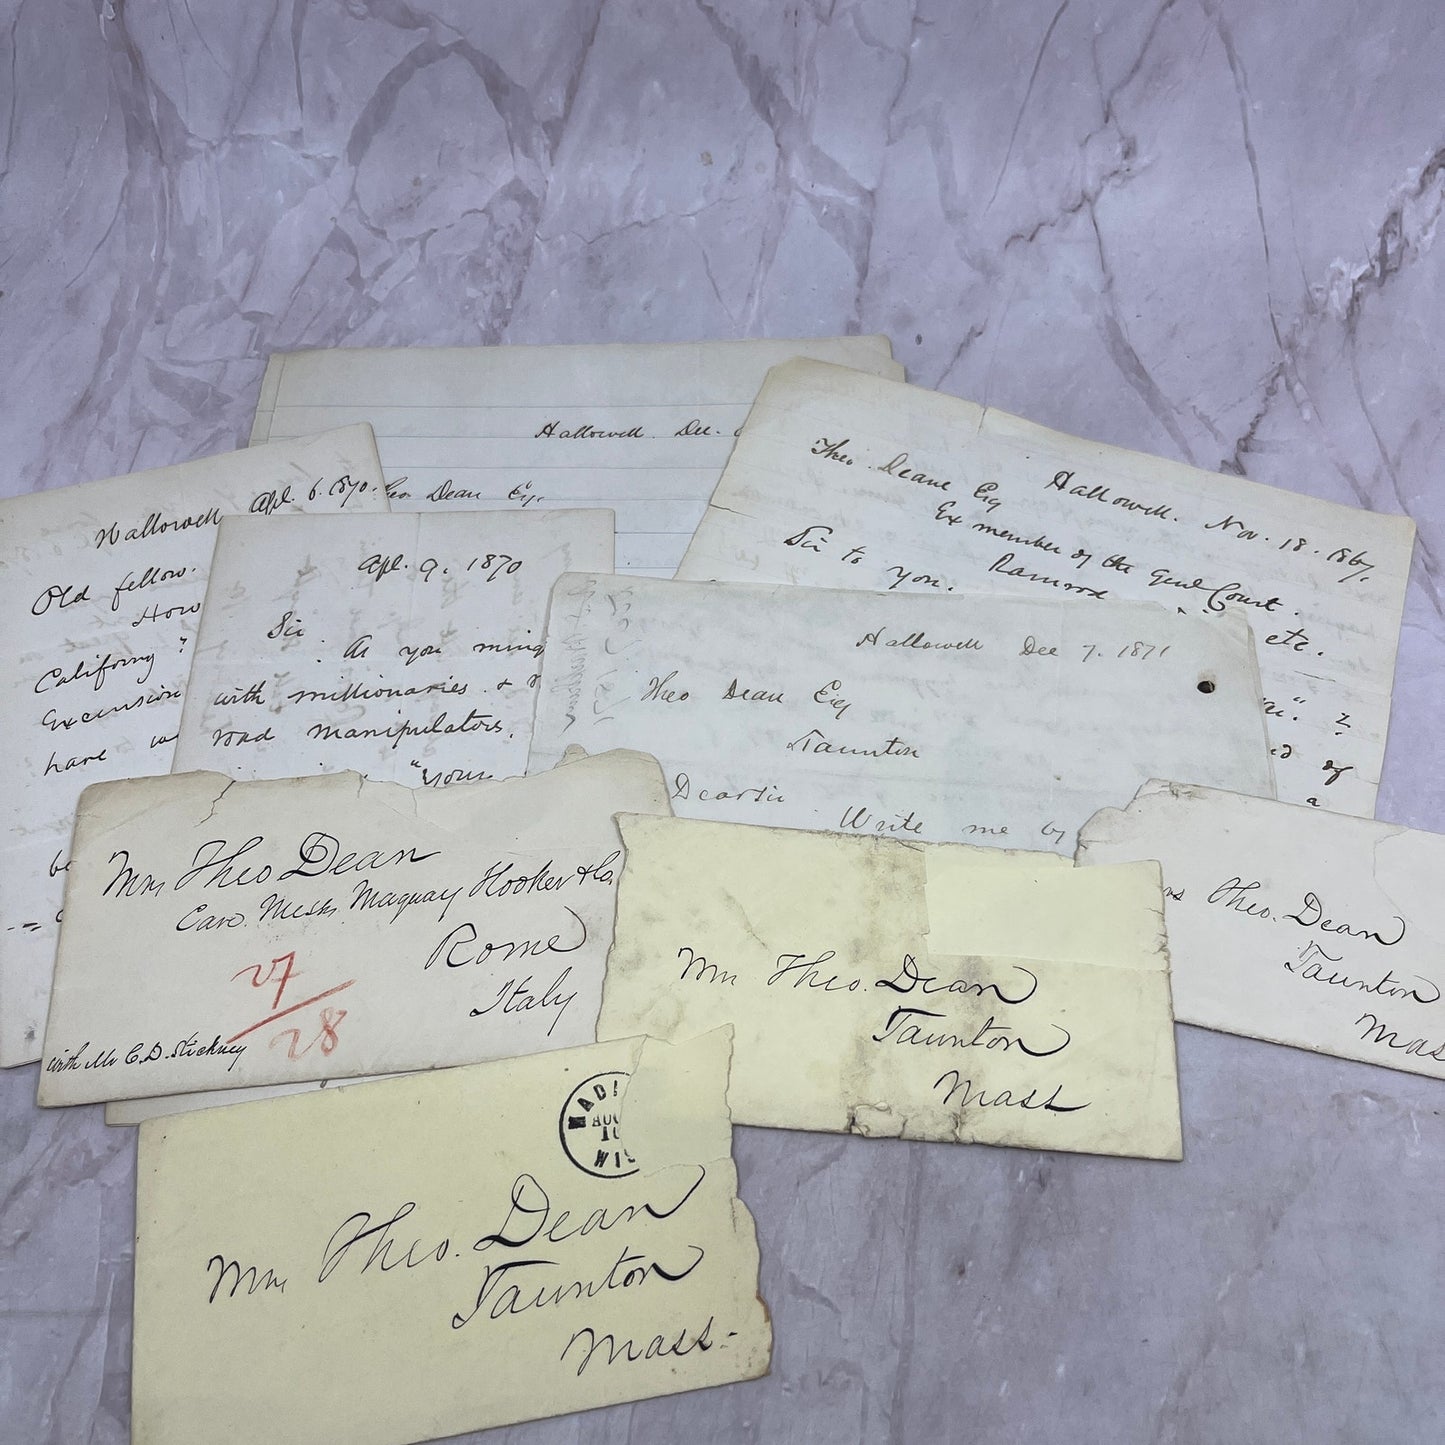 Hallowell. Dec.
Dean Esq.
Hallowell Apl. 6. 1870.
Old fellow.
How
California?
Excursion
have
Apl. 9. 1870
Sir
As you ming
with millionaries. &
road manipulators.
"your
Theo. Deane Esq
Hallowell. Nov. 18. 1867.
Ex member of the Genl Court.
Ramrod
etc.
Sir to you.
of
a
Hallowell Dec 7. 1871
Theo Dean Esq
Taunton
Dear Sir
Write me by
Mrs Theo Dean
Care. Messrs. Maquay Hooker & Co.
Rome
Italy
27
28
with Mr C. D. Stickney
Mrs Theo. Dean
Taunton
Mass
Theo. Dean
Taunton
Mas
MADI
AUG
10
WIS
Mrs Theo. Dean
Taunton
Mass-